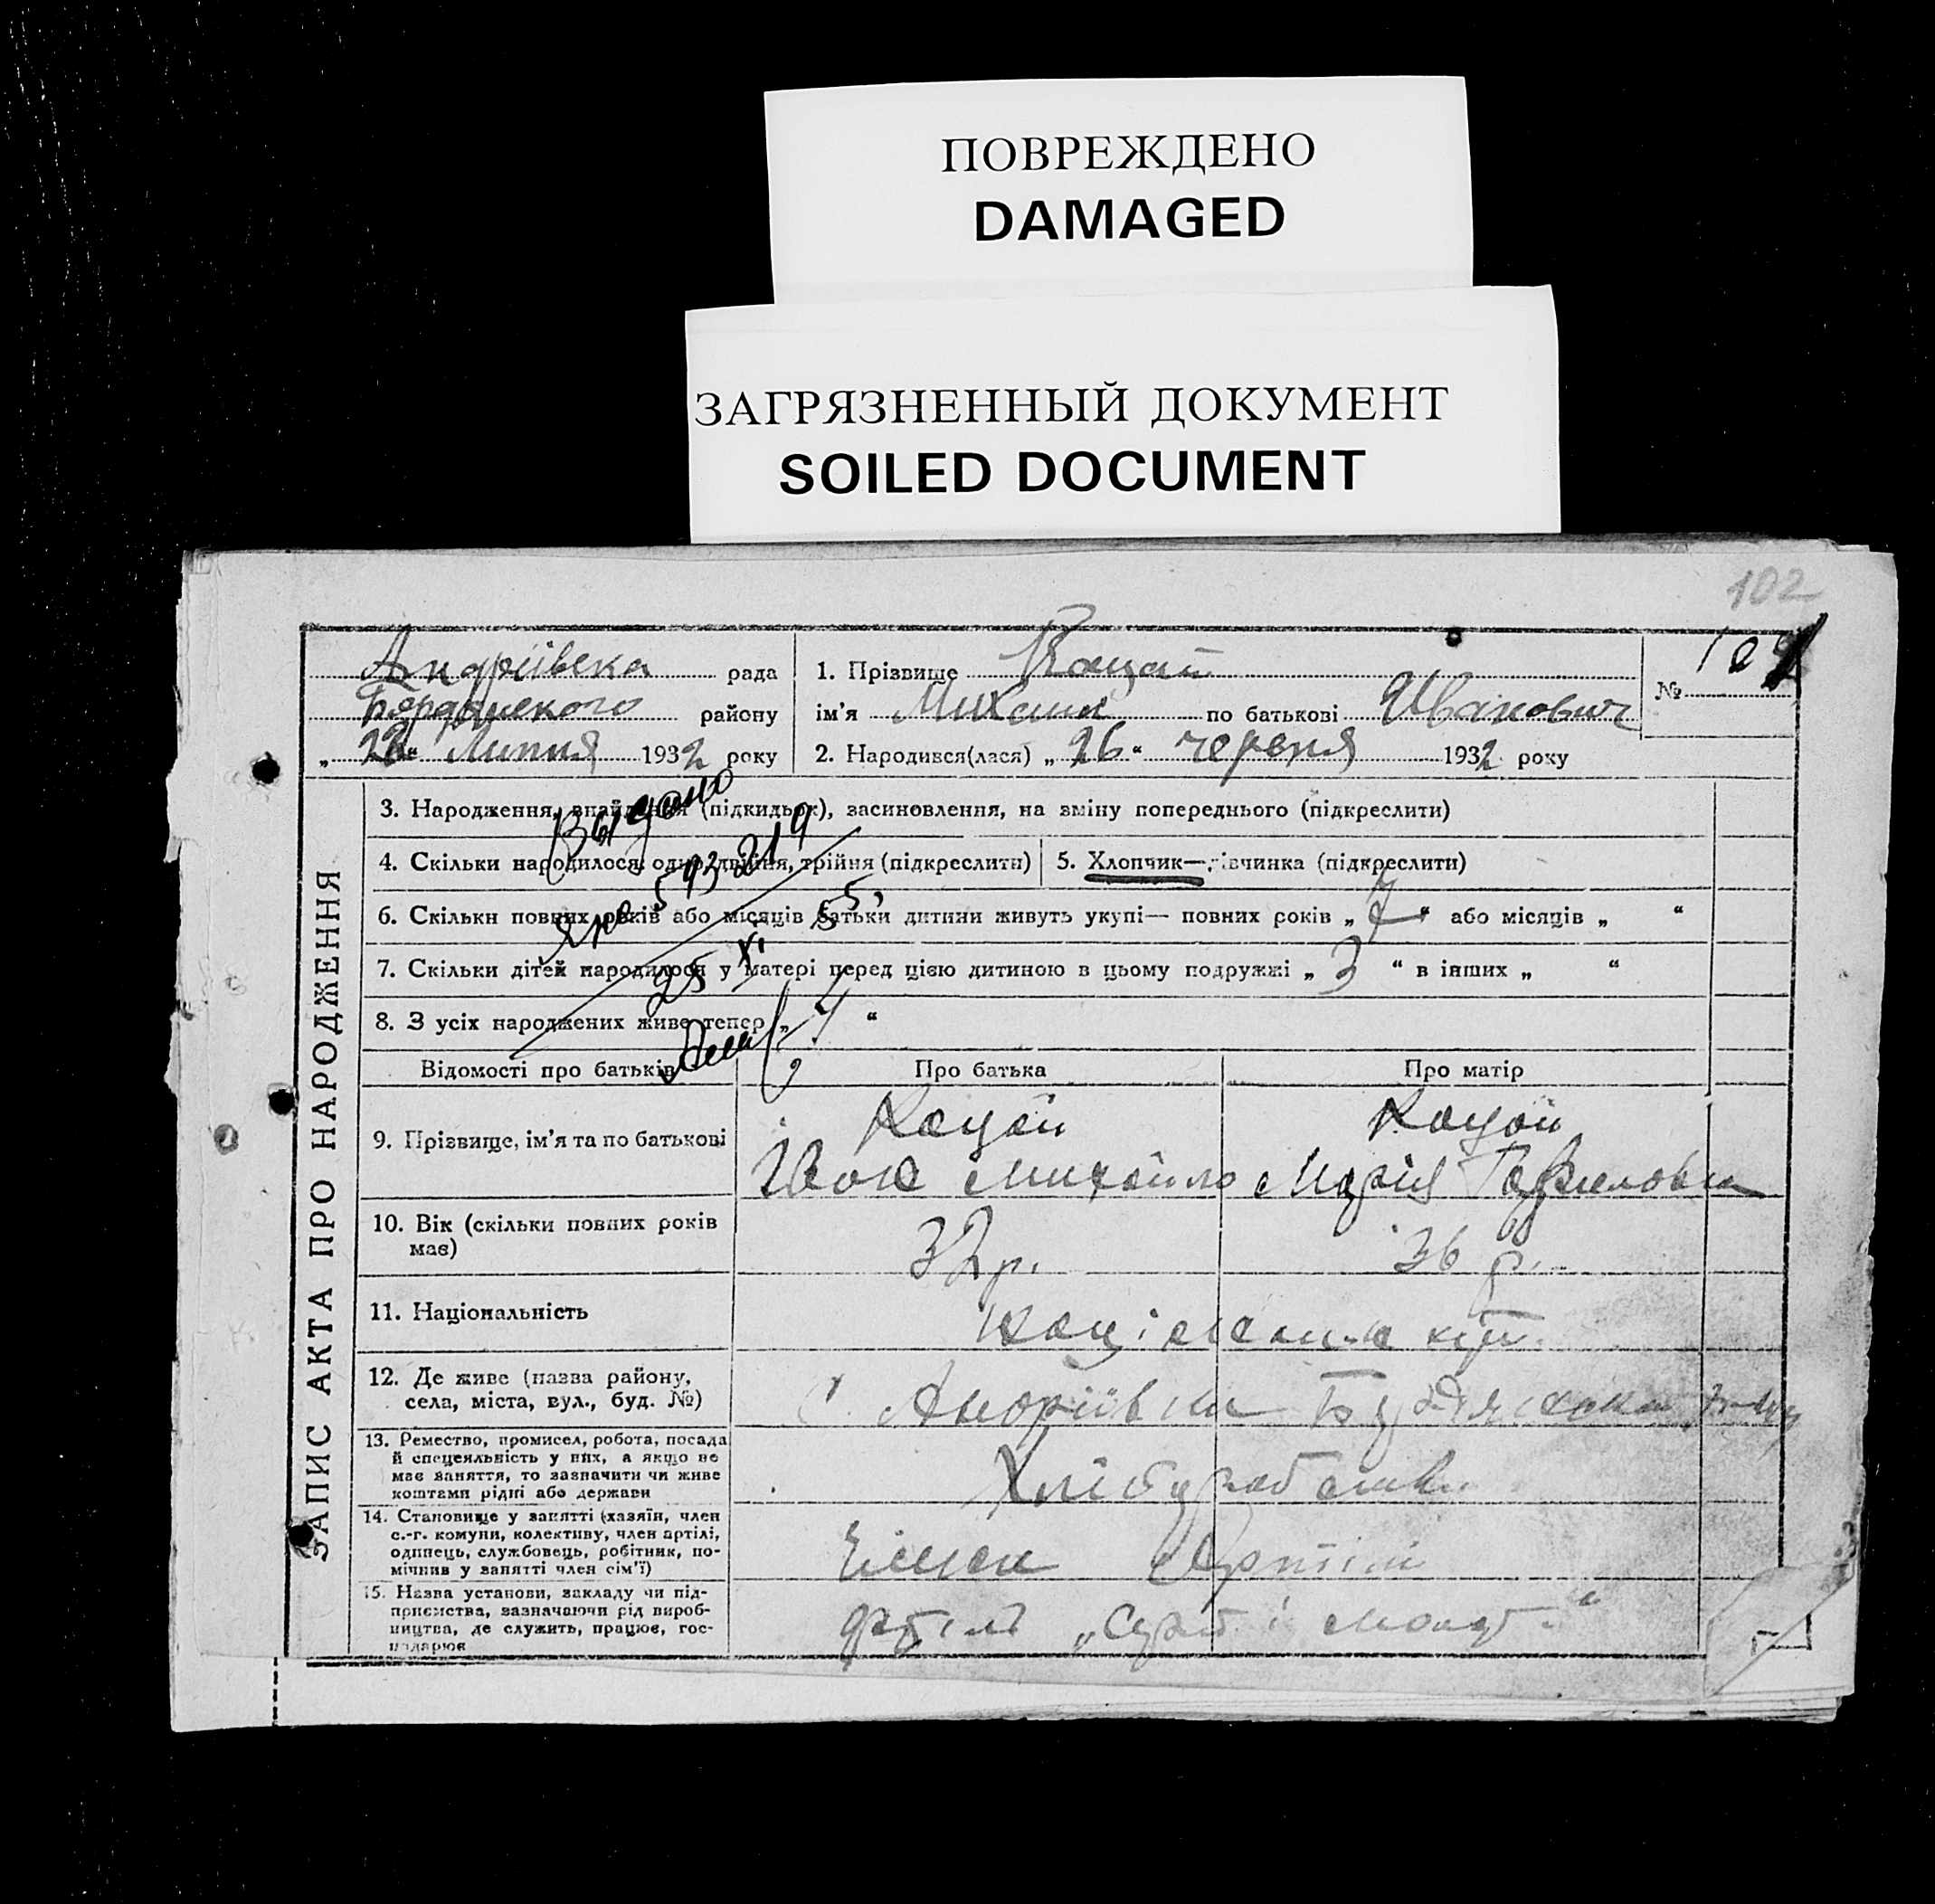 ПОВРЕЖДЕНО
DAMAGED
ЗАГРЯЗНЕННЫЙ ДОКУМЕНТ
SOILED DOCUMENT
102
Андріївска рада
Бердянського району
„ “ Липня 1932 року
1. Прізвище Кацай
ім'я Михаил по батькові Иванович
2. Народився(лася) „26“ червня 1932 року
№ 10
ЗАПИС АКТА ПРО НАРОДЖЕННЯ
3. Народження, знайдення (підкидьок), засиновлення, на зміну попереднього (підкреслити)
4. Скільки народилося одно, двійня, трійня (підкреслити)
5. Хлопчик—дівчинка (підкреслити)
6. Скільки повних років або місяців батьки дитини живуть укупі— повних років „7“ або місяців „ “
7. Скільки дітей народилося у матері перед цією дитиною в цьому подружжі „3“ в інших „ “
8. З усіх народжених живе тепер „4“
Выдано
25 XI 55
Відомості про батьків
Про батька
Про матір
9. Прізвище, ім'я та по батькові
Кацай
Іван Михайло
Кацай
Марія
10. Вік (скільки повних років має)
32 р.
36 р.
11. Національність
12. Де живе (назва району,
села, міста, вул., буд. №)
с. Андріївка
13. Ремество, промисел, робота, посада
й спецеяльність у них, а якщо не
має заняття, то зазначити чи живе
коштами рідні або держави
14. Становище у занятті (хазяїн, член
с.-г. комуни, колективу, член артілі,
одинець, службовець, робітник, по-
мічник у занятті член сім'ї)
Член Артілі
15. Назва установи, закладу чи під-
приємства, зазначаючи рід вироб-
ництва, де служить, працює, гос-
подарює
„Серп і молот“